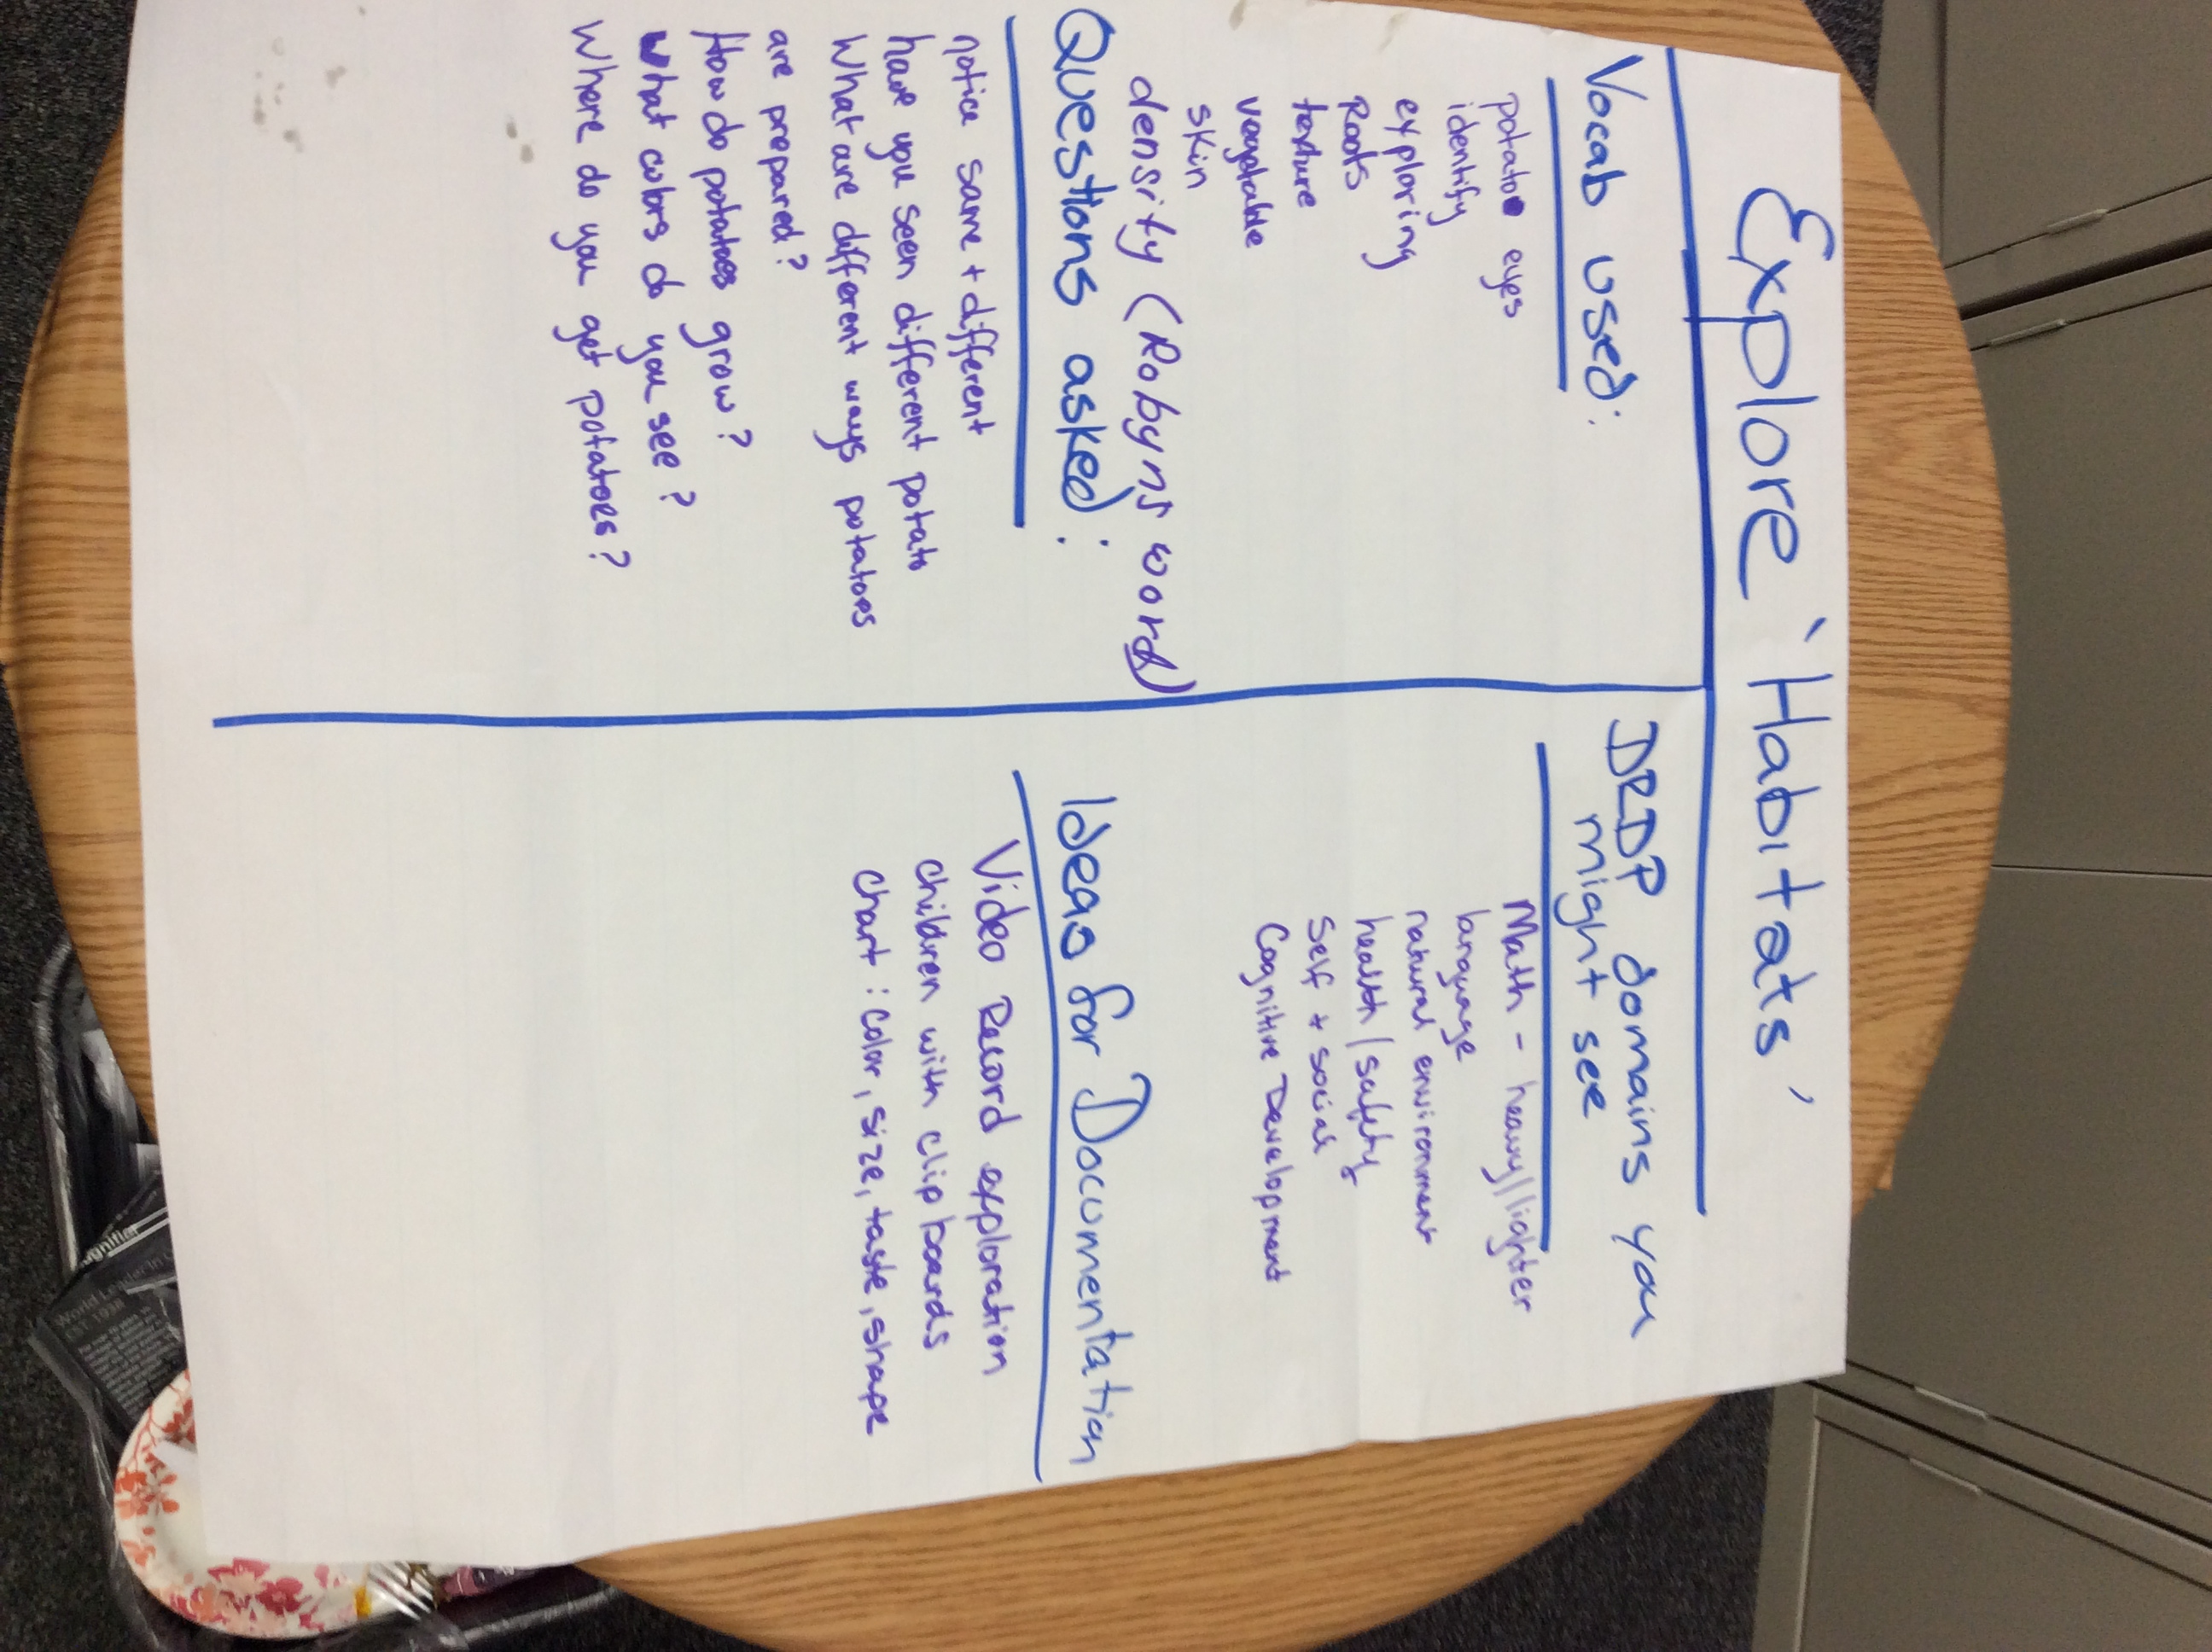 Explore 'Habitats'
Vocab used:
potato eyes
identify
exploring
Roots
texture
vegetable
skin
density (Robyns word)
Questions asked:
notice same + different
have you seen different potato
What are different ways potatoes
are prepared?
How do potatoes grow?
What colors do you see?
Where do you get potatoes?
DRDP domains you
might see
Math - heavy/lighter
language
natural environment
health/safety
Self + social
Cognitive Development
Ideas for Documentation
Video Record exploration
children with clip boards
Chart: Color, size, taste, shape
World
1938